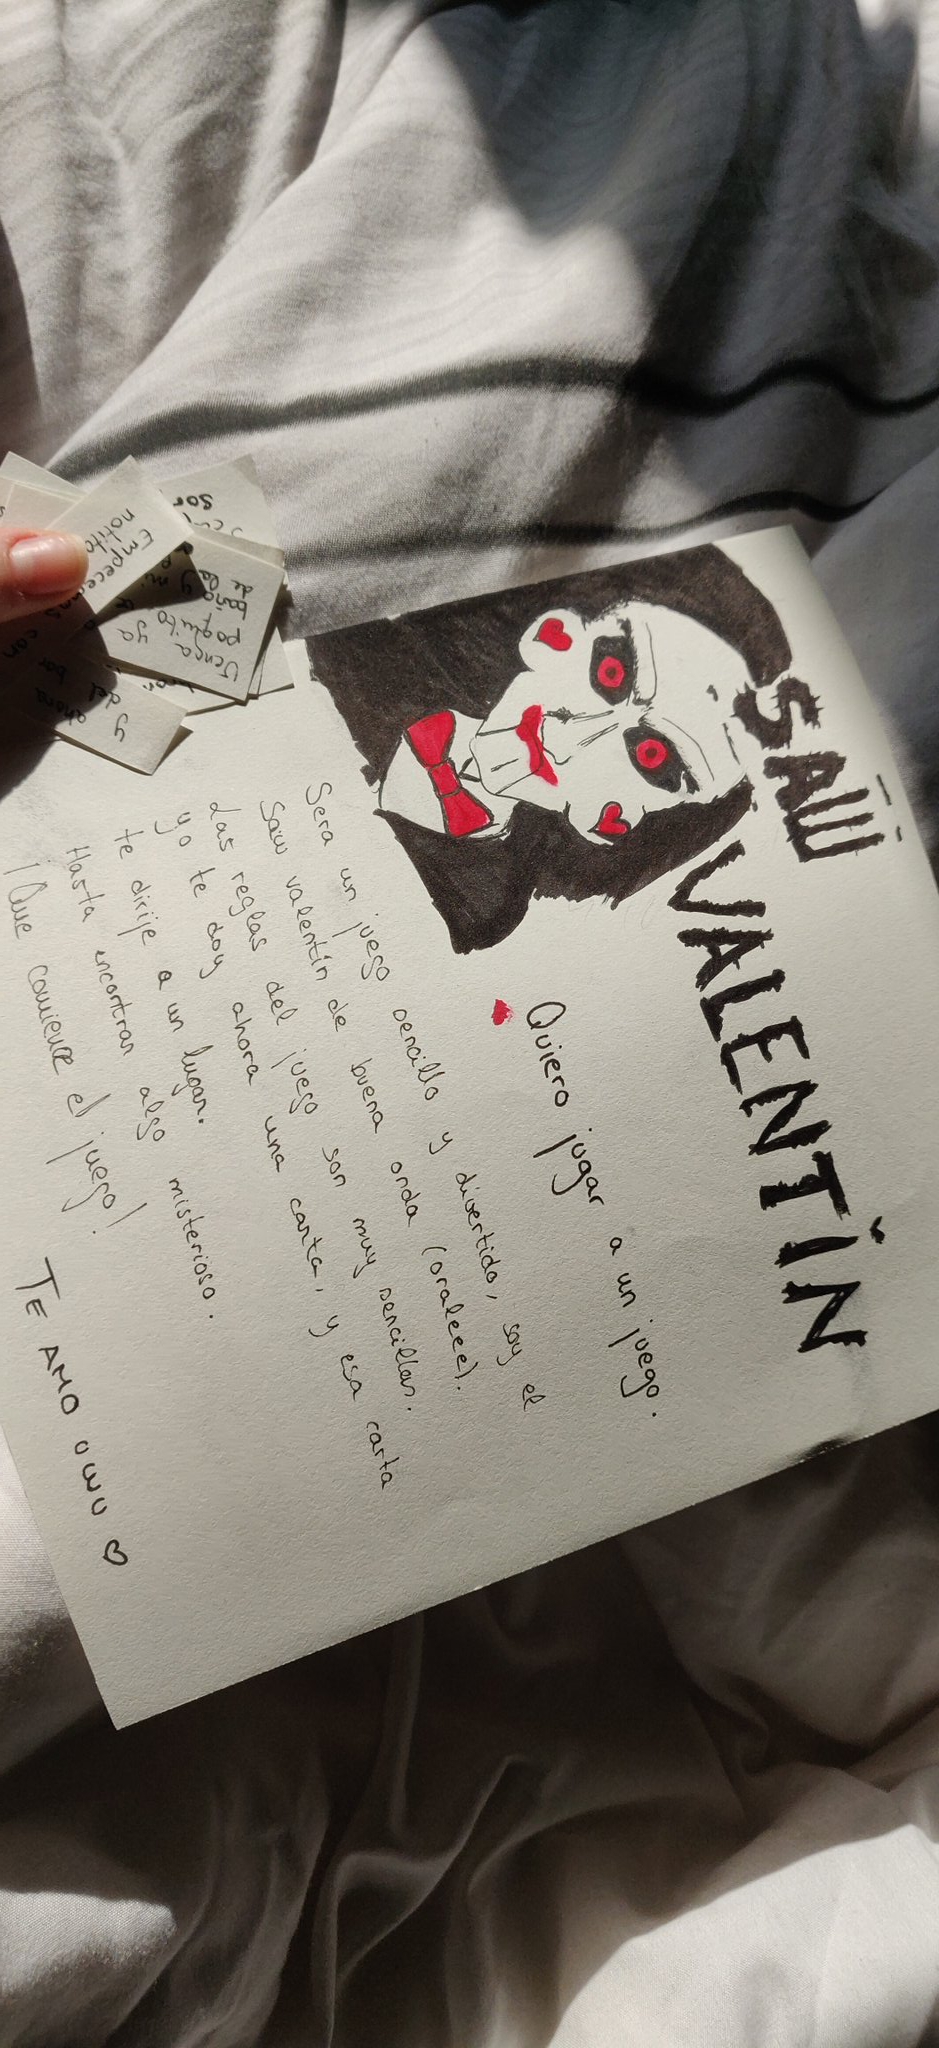 SAW VALENTÍN
Quiero jugar a un juego.
Sera un juego sencillo y divertido, soy el
Saw valentín de buena onda (oraleee).
Las reglas del juego son muy sencillas.
yo te doy ahora una carta, y esa carta
te dirije a un lugar.
Hasta encontrar algo misterioso.
¡Que comience el juego!
TE AMO OWO ♡
Empecemos con
notito
Venga
poquito ya
baña y
de la
y ahora
del bar